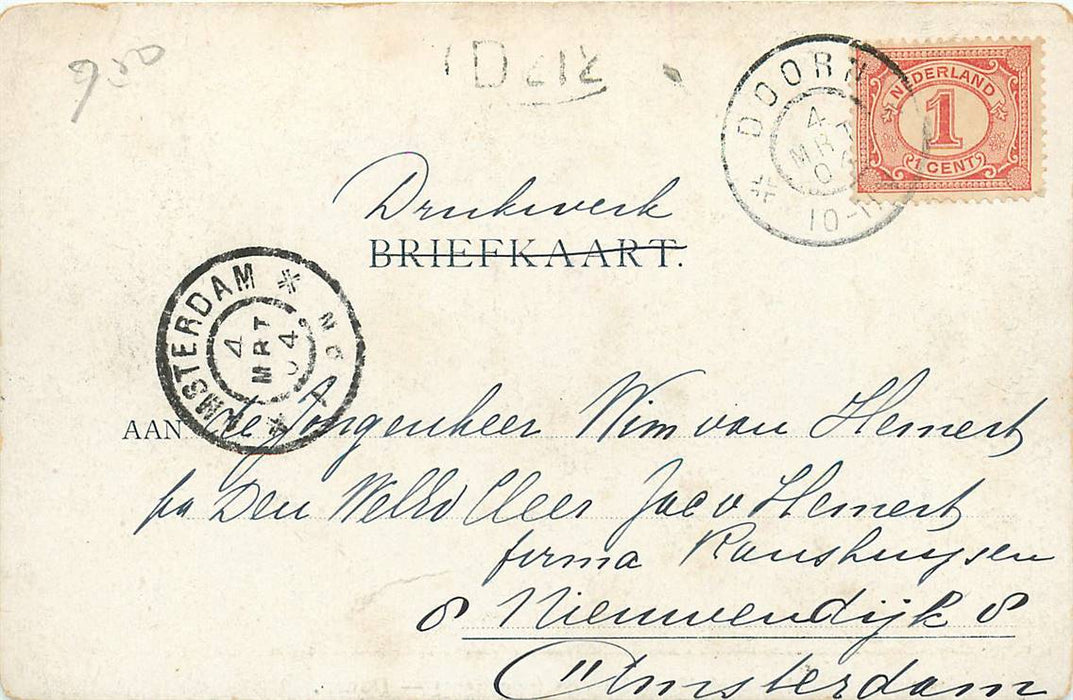 950
DOORN
4
MRT
10-11
NEDERLAND
1
1 CENT
Drukwerk
BRIEFKAART.
AMSTERDAM
4
MRT
04
AAN de Jongenheer Wim van Hemert
pa Den WelEd Heer Jac v Hemert
firma
8 Nieuwendijk 8
Amsterdam